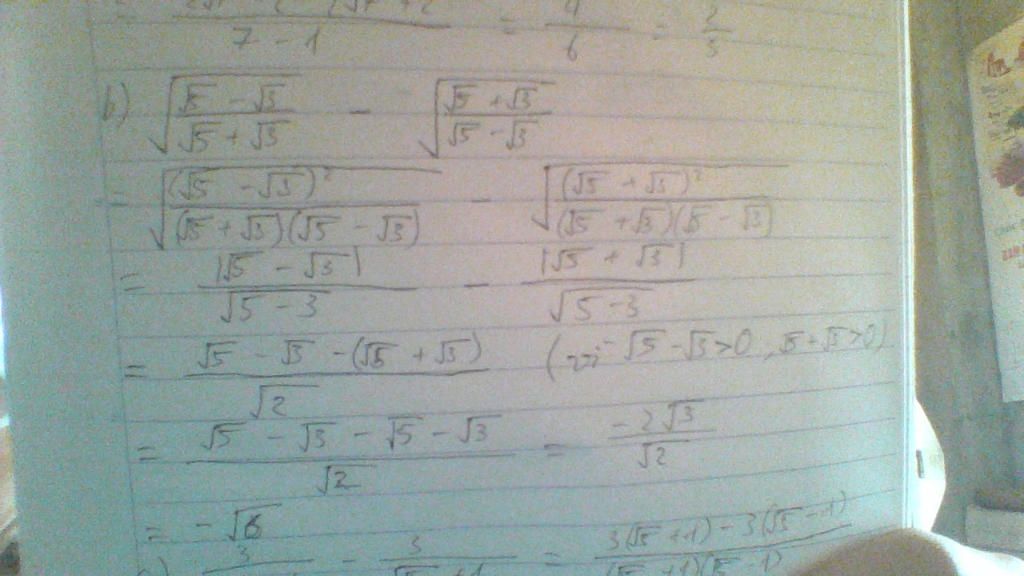 7 - 1 = 4/6 = 2/3
b) √((√5 - √3)/(√5 + √3)) - √((√5 + √3)/(√5 - √3))
= √((√5 - √3)²/((√5 + √3)(√5 - √3))) - √((√5 + √3)²/((√5 + √3)(√5 - √3)))
= |√5 - √3|/√5-3 - |√5 + √3|/√5-3
= (√5 - √3 - (√5 + √3))/√2 (vì √5 - √3 > 0, √5 + √3 > 0)
= (√5 - √3 - √5 - √3)/√2 = -2√3/√2
= -√6
3 - 3/(√5 + 1) = (3(√5 + 1) - 3(√5 - 1))/((√5 + 1)(√5 - 1))